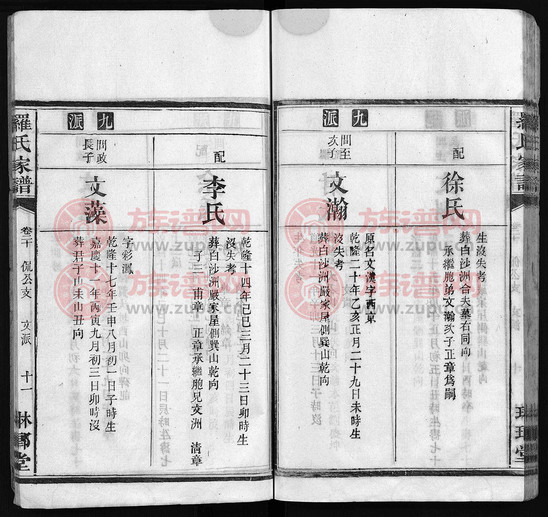 徐氏
配
生沒失考
葬白沙洲合夫墓右同向
承繼胞弟文瀚次子正章爲嗣
九派
間至次子
文瀚
原名文漢字西京
乾隆二十年乙亥正月二十九日未時生
沒失考
葬白沙洲嚴家屋側巽山乾向
配
李氏
乾隆十四年己巳三月二十三日卯時生
沒失考
葬白沙洲嚴家屋側巽山乾向
子三
正章承繼胞兄文洲
清章
九派
間政長子
文藻
字彩鳳
乾隆十七年壬申八月初一日子時生
嘉慶十一年丙寅九月初三日卯時沒
葬君子山未山丑向
羅氏家譜
卷二十
侃公支
文派
十一
林鄉堂
族谱网
www.zupu.cn